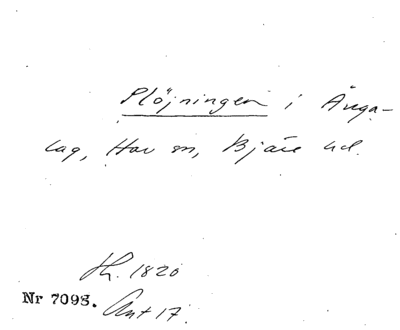 Plöjningen i Änga-
lag, Hov sn, Bjäre hd.
Hs. 1820
Nr 7098. Ant 17.